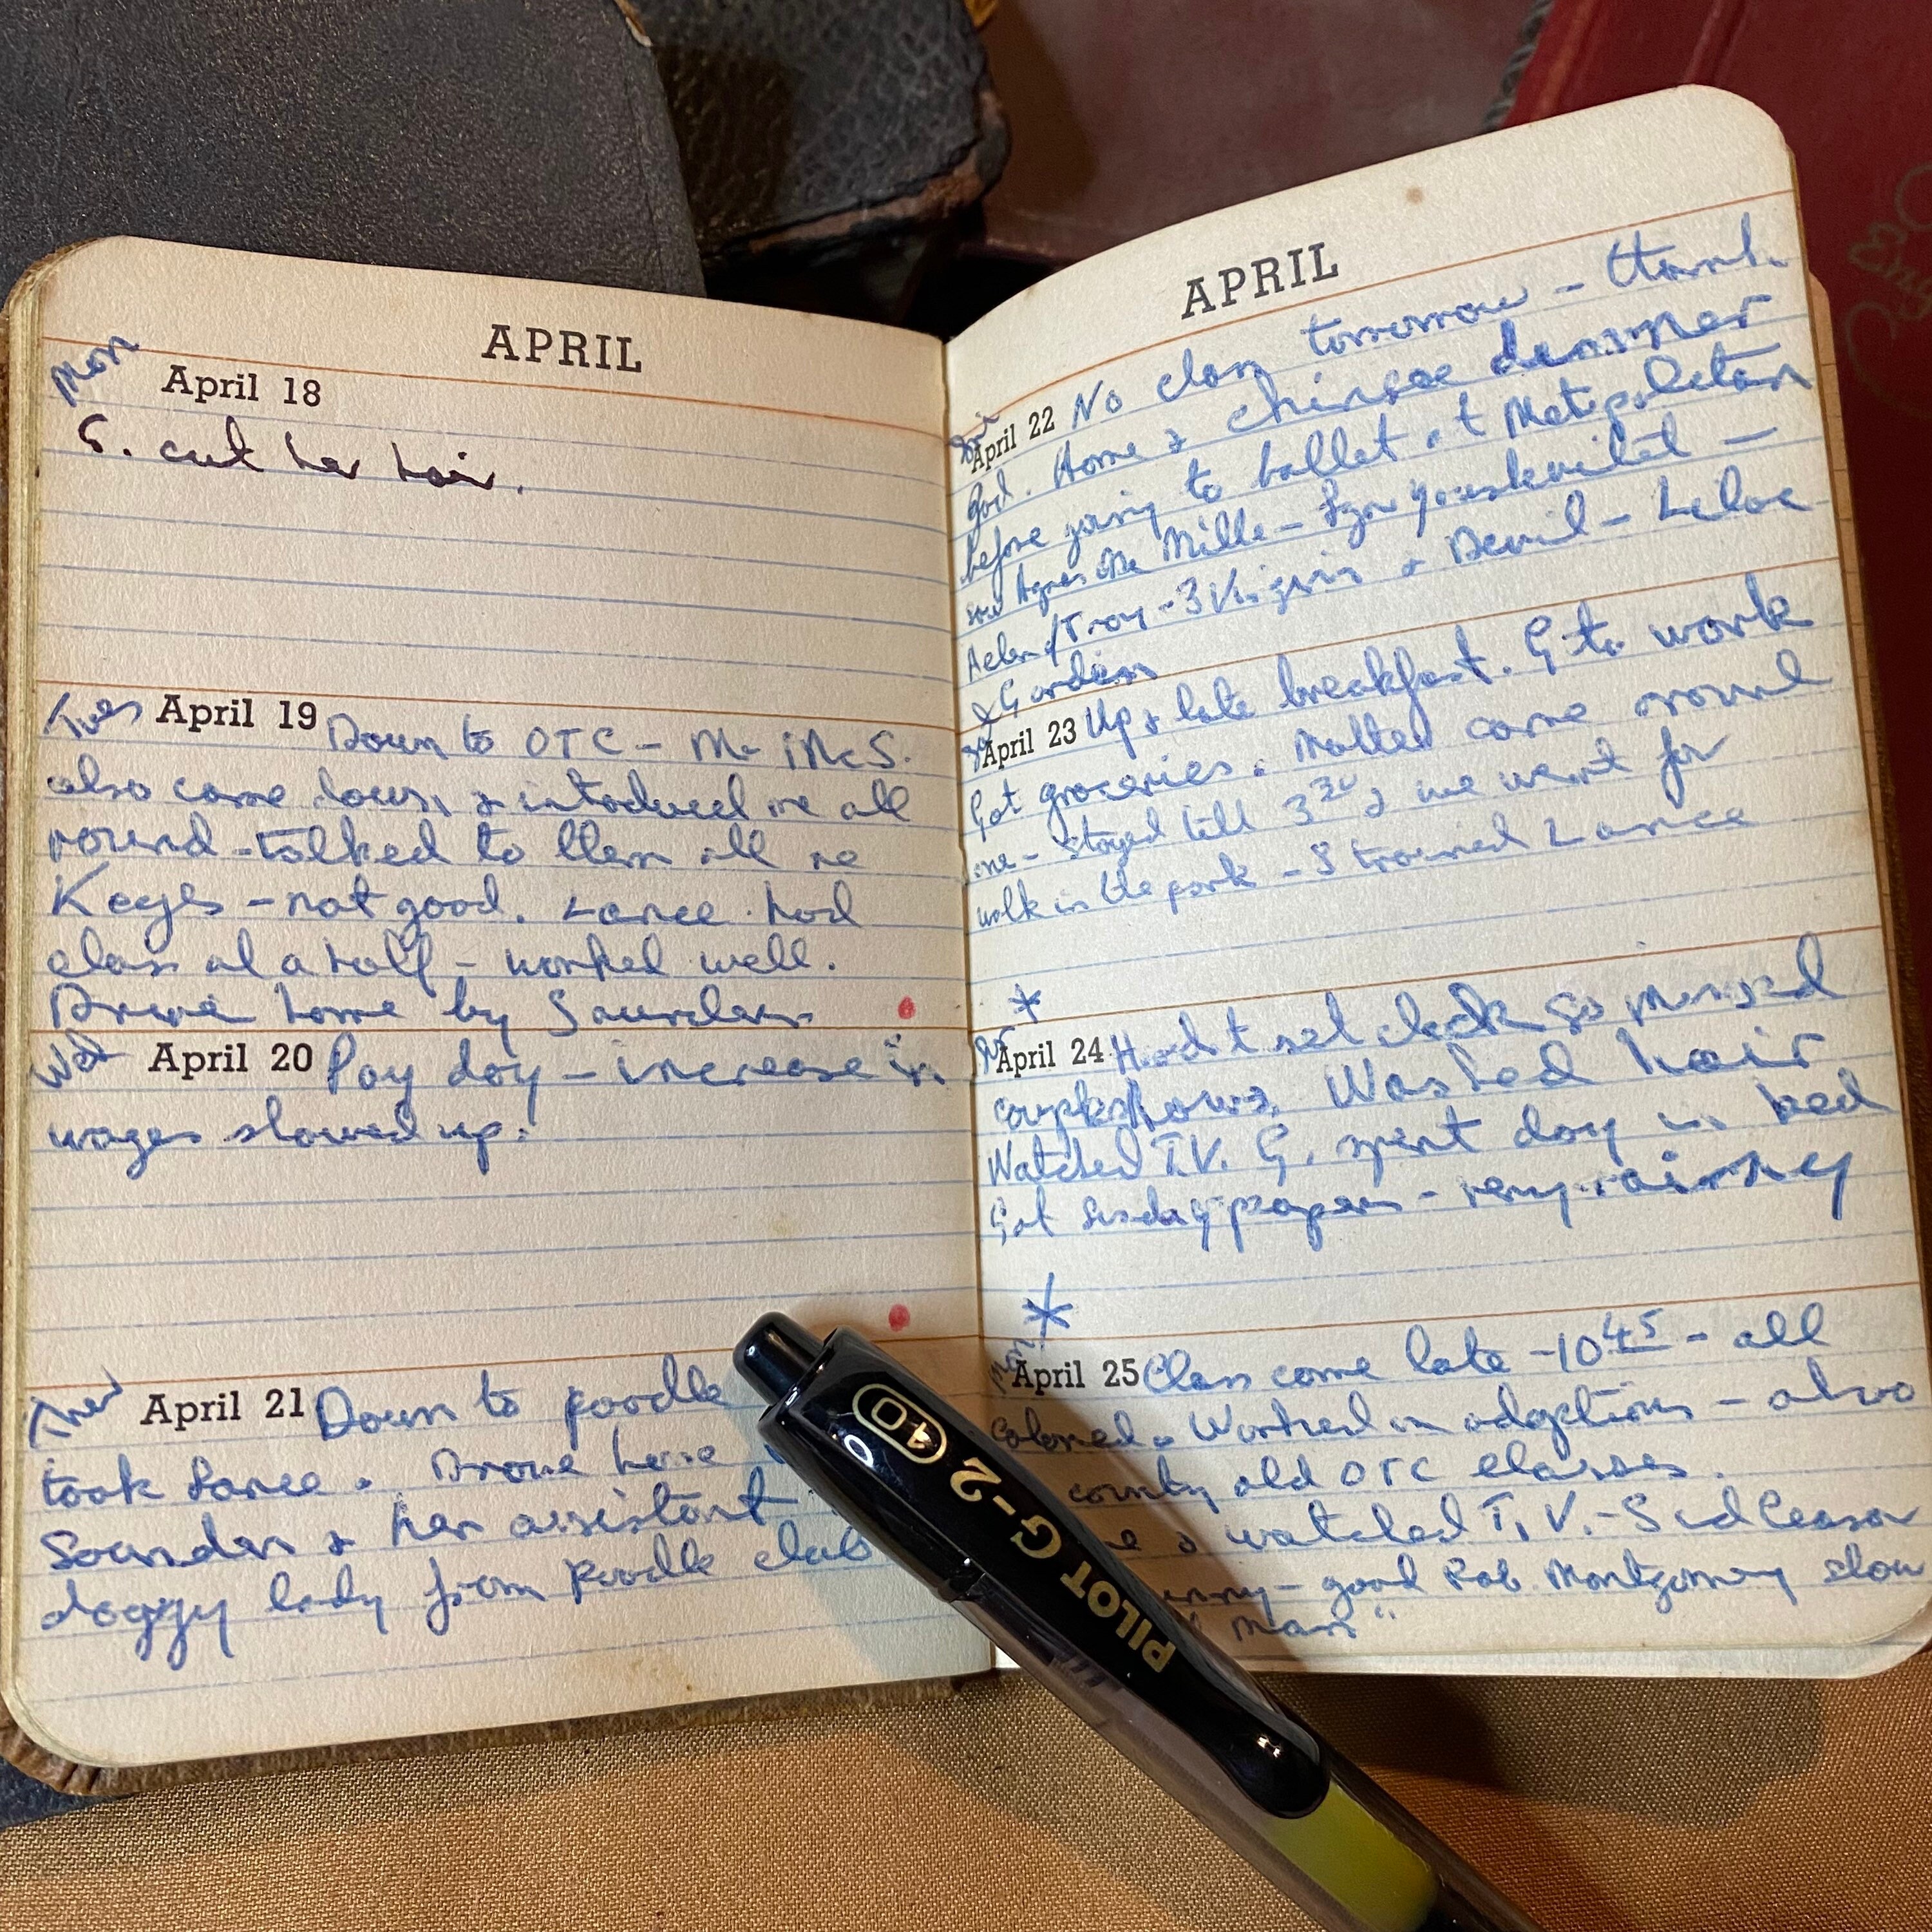 APRIL
Mon
April 18
S. cut her hair.
Tues April 19 Down to OTC - Mr McS.
also came down & introduced me all
round - talked to them all re
Keyes - not good. Lance had
class at a half - worked well.
Drive home by Saunders
Wed April 20 Pay day - increase in
wages showed up.
April 21 Down to poodle
took Lance. Drove home
Saunders & her assistant
doggy lady from Poodle club
APRIL
April 22 No class tomorrow - thank
God. Home & chinese dinner
before going to ballet at Metropolitan
saw Agnes De Mille - Igor Youskevitch -
Helen of Troy - 3 Virgins & Devil - Lilac
Garden
April 23 Up & late breakfast. G to work
Got groceries. Mother came round
one - stayed till 3 30 & we went for
walk in the park - S trained Lance
*
April 24 Hadn't set clock so missed
couple hours. Washed hair
Watched T.V. G. spent day in bed
Got Sunday papers - very rainey
*
Mon
April 25 Class come late - 10 45 - all
colored. Worked on adoptions - also
county old OTC classes.
& watched T.V. - Sid Ceasar
good Rob. Montgomery show
Man"
PILOT G-2 10